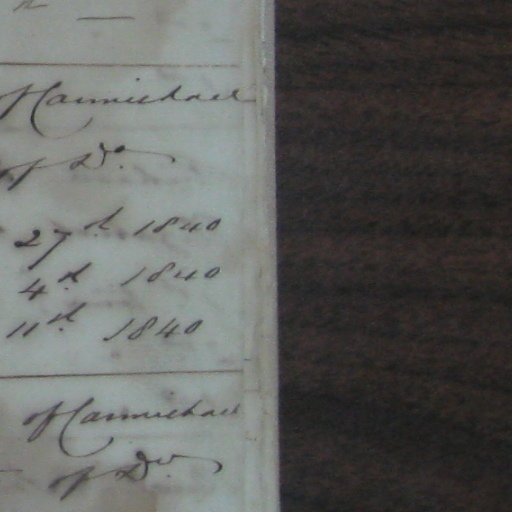 of Carmichael
of Do.
27th 1840
4th 1840
11th 1840
of Carmichael
of Do.